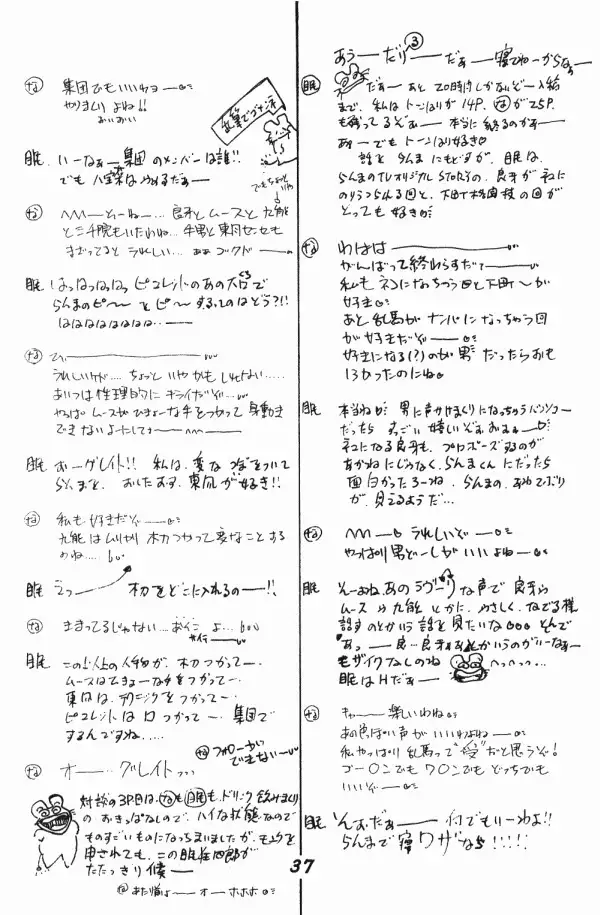 な 集団でもいいわョー
やりまくりよね!!
おいおい
眠 いーなぁー集団のメンバーは誰!!
でも八宝菜はいやだぁー
な へへへーどーね…良牙とムースと九能
と三千院もいたわね…
まざってると うれしい… ゴクドー
眠 はっはっはっはっ ピコレットのあの大口で
らんまのピ〜とピ〜するってのはどう?!!
はははははははは…ー
な ひぃー
うれしいけど……ちょっといやかもしれない……
あいつは性理的にキライだぞ…
やっぱムースがひきょーな手をつかって身動き
できないよーにしてョー
眠 おーグレイト!! 私は、変なつぼをついて
らんまを、おしたおす、東風が好き!!
な 私も好きだぞー
九能はムリヤリ木刀つかって変なことする
のね……
眠 えっー 木刀をどこに入れるのー!!
な きまってるじゃない…おイコョ…
眠 この以上の人物が、木刀つかってー、
ムースはひきょーな手をつかってー、
東風は、テクニックをつかってー、
ピコレットは口つかってー、集団で
するんですね、….
な フォローがいできないー
な オー…グレイトッ
対談の3P目は、なも眠も、ドリンク飲みまくり
のおきっぱなしので、ハイな状態なので
ものすごいものになってしまいましたが、
申されても、この眠狂四郎が
たたっきり候ー
な あた婚よーオーホホホ
37
あぅーだり③ーだぁー寝てねーからなぁー
眠 だぁーあと20時間しかないぞー入稿
まで、私はトーンはりが14P、なが25P
も残ってるぞぉー本当に終るのかぁー
あーでもトーンはり好き♡
話をらんまにもどすが、眠は、
らんまのTVオリジナルSTORYの、良牙がネコに
のりうつられる回と、下町格闘技の回が
とっても好きだ
な わははー
がんばって終わらすだァー
私もネコになっちゃう回と下町〜が
好き
あと乱馬がナンパになっちゃう回
が好きだぞー
好きになる(?)のが男だったらおも
しろかったのにね
眠 本当ねが 男に声かけまくりになっちゃうバージョン
だったら すっごい嬉しいぞぉ
ネコになる良牙も、プロポーズするのが
あかねにじゃなく、らんまくんにだったら
面白かったろーね、らんまの、あわてぶり
が、見えるようだ…
な へへへー うれしいぞー
やっぱり男どーしがいいよねー
眠 そーよね、あのラヴリーな声で良牙や
ムースや九能とかに、やさしく、なでる様
話すのとかいう話を見たいな○○○とんで
"あっー良…良牙おれとかいうのがいーなぁー
モザイクなしのね へへっへっ…
眠はHだぁー
な キャー楽しいわね
あの色っぽい声がいいわよねー
私やっぱり乱馬って"受"だと思うぞ!
ゴー○ンでもワ○ンでもどっちでも
いいぞー
眠 そんだぁー何でもいーわよ!!
らんまで寝ワザなら!!!!